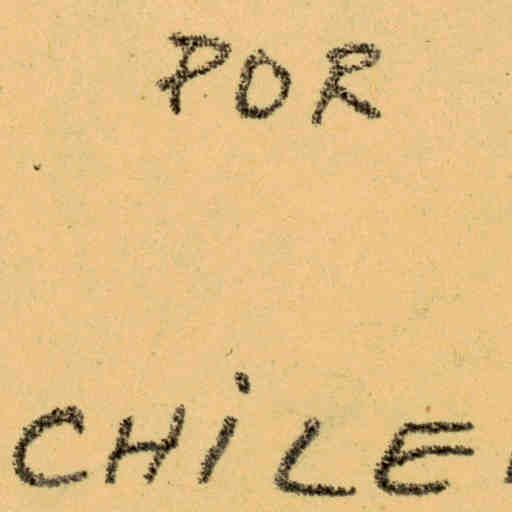 POR
CHiLE